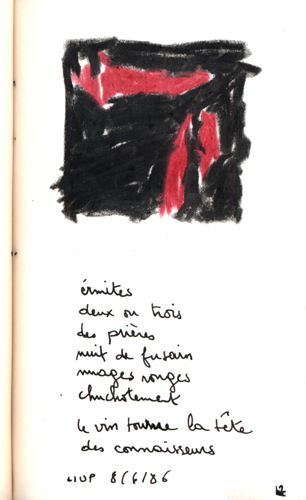 érmites
deux ou trois
des prières
nuit de fusain
nuages rouges
chuchotement
le vin tourne la tête
des connaisseurs
8/6/86